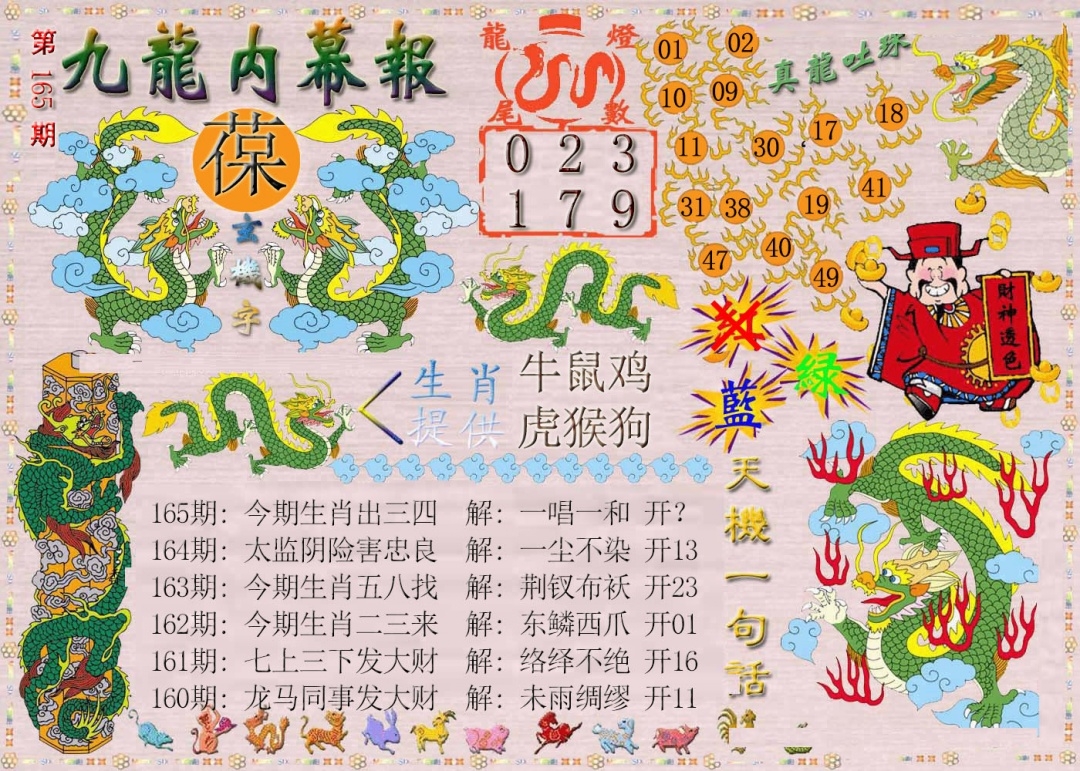 第165期
九龍内幕報
葆
玄機字
龍燈
尾數
0 2 3
1 7 9
真龍吐珠
01 02
10 09
11 30 17 18
31 38 19 41
47 40 49
財神透色
红
藍
綠
生肖
提供
牛鼠鸡
虎猴狗
天機一句話
165期：今期生肖出三四 解：一唱一和 开？
164期：太监阴险害忠良 解：一尘不染 开13
163期：今期生肖五八找 解：荆钗布袄 开23
162期：今期生肖二三来 解：东鳞西爪 开01
161期：七上三下发大财 解：络绎不绝 开16
160期：龙马同事发大财 解：未雨绸缪 开11